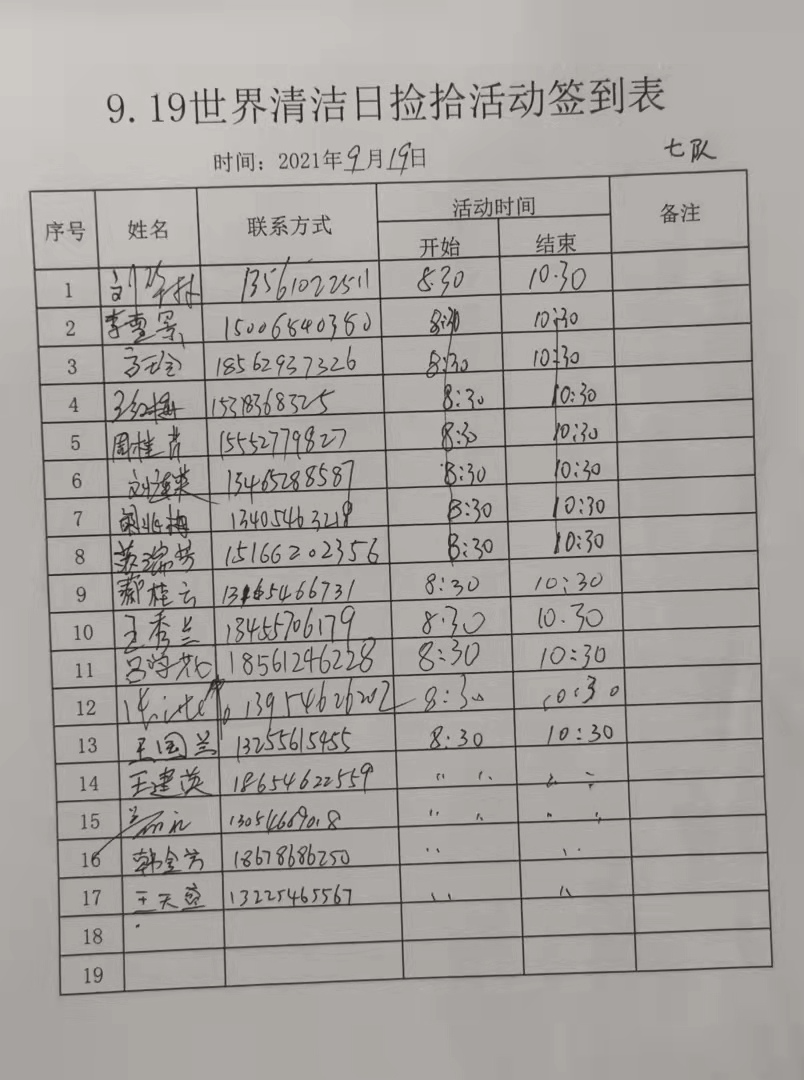 9.19世界清洁日捡拾活动签到表
时间：2021年9月19日 七队
序号 姓名 联系方式 活动时间 备注
开始 结束
1 13561022511 8:30 10:30
2 李雪景 15006840380 8:30 10:30
3 18562937326 8:30 10:30
4 王红梅 15318368325 8:30 10:30
5 周桂芹 15552779827 8:30 10:30
6 13465288587 8:30 10:30
7 13405463218 8:30 10:30
8 苏瑞芳 15166202356 8:30 10:30
9 桂云 8:30 10:30
10 王秀兰 13455706179 8:30 10.30
11 18561246228 8:30 10:30
12 13954626202 8:30 10:30
13 王国兰 13255615455 8:30 10:30
14 王建英 18654622559 〃 〃 〃 〃
15 13054669018 〃 〃 〃 〃
16 韩金芳 18678686250 〃 〃
17 王天莲 13225465567 〃 〃
18
19